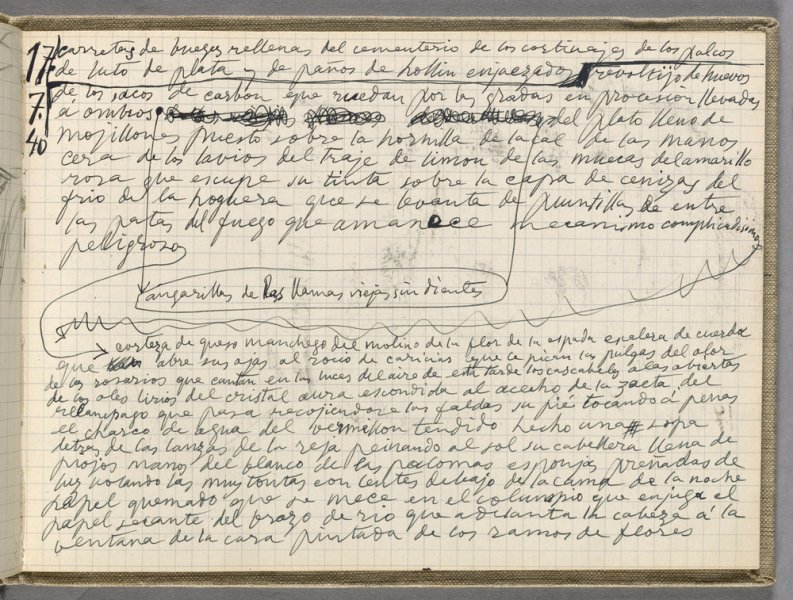 17. carretas de bueyes rellenas del cementerio de los cortinajes de los palcos
de luto de plata y de paños de hollin enjaezados revoltijo de huevos
7. de los sacos de carbon que ruedan por las gradas en procesion llevadas
40 á ombros del plato lleno de
mojillones puesto sobre la hornilla de la cal de las manos
cera de los lavios del traje de limon de las muecas del amarillo
rosa que escupe su tinta sobre la capa de cenizas del
frio de la hoguera que se levanta de puntillas de entre
las patas del fuego que amanece mecanismo complicadisimo
peligroso
angarillas de las llamas viejas sin dientes
corteza de queso manchego del molino de la flor de la espada escalera de cuerda
que abre sus ojas al rocio de caricias que le pican las pulgas del olor
de los rosarios que cantan en las luces del aire de esta tarde los cascabeles a alas abiertas
de los oles lirios del cristal aura escondida al acecho de la zaeta del
rellampago que pasa recojiendose las faldas su pié tocando á penas
el charco de agua del vermellon tendido hecho una sopa
detras de las lanzas de la reja peinando al sol su cabellera llena de
piojos manos del blanco de las palomas esponjas preñadas de
luz votando las muy tontas contentes debajo de la cama de la noche
papel quemado que se mece en el columpio que enjuga el
papel secante del brazo de rio que adelanta la cabeza á la
ventana de la cara pintada de los ramos de flores